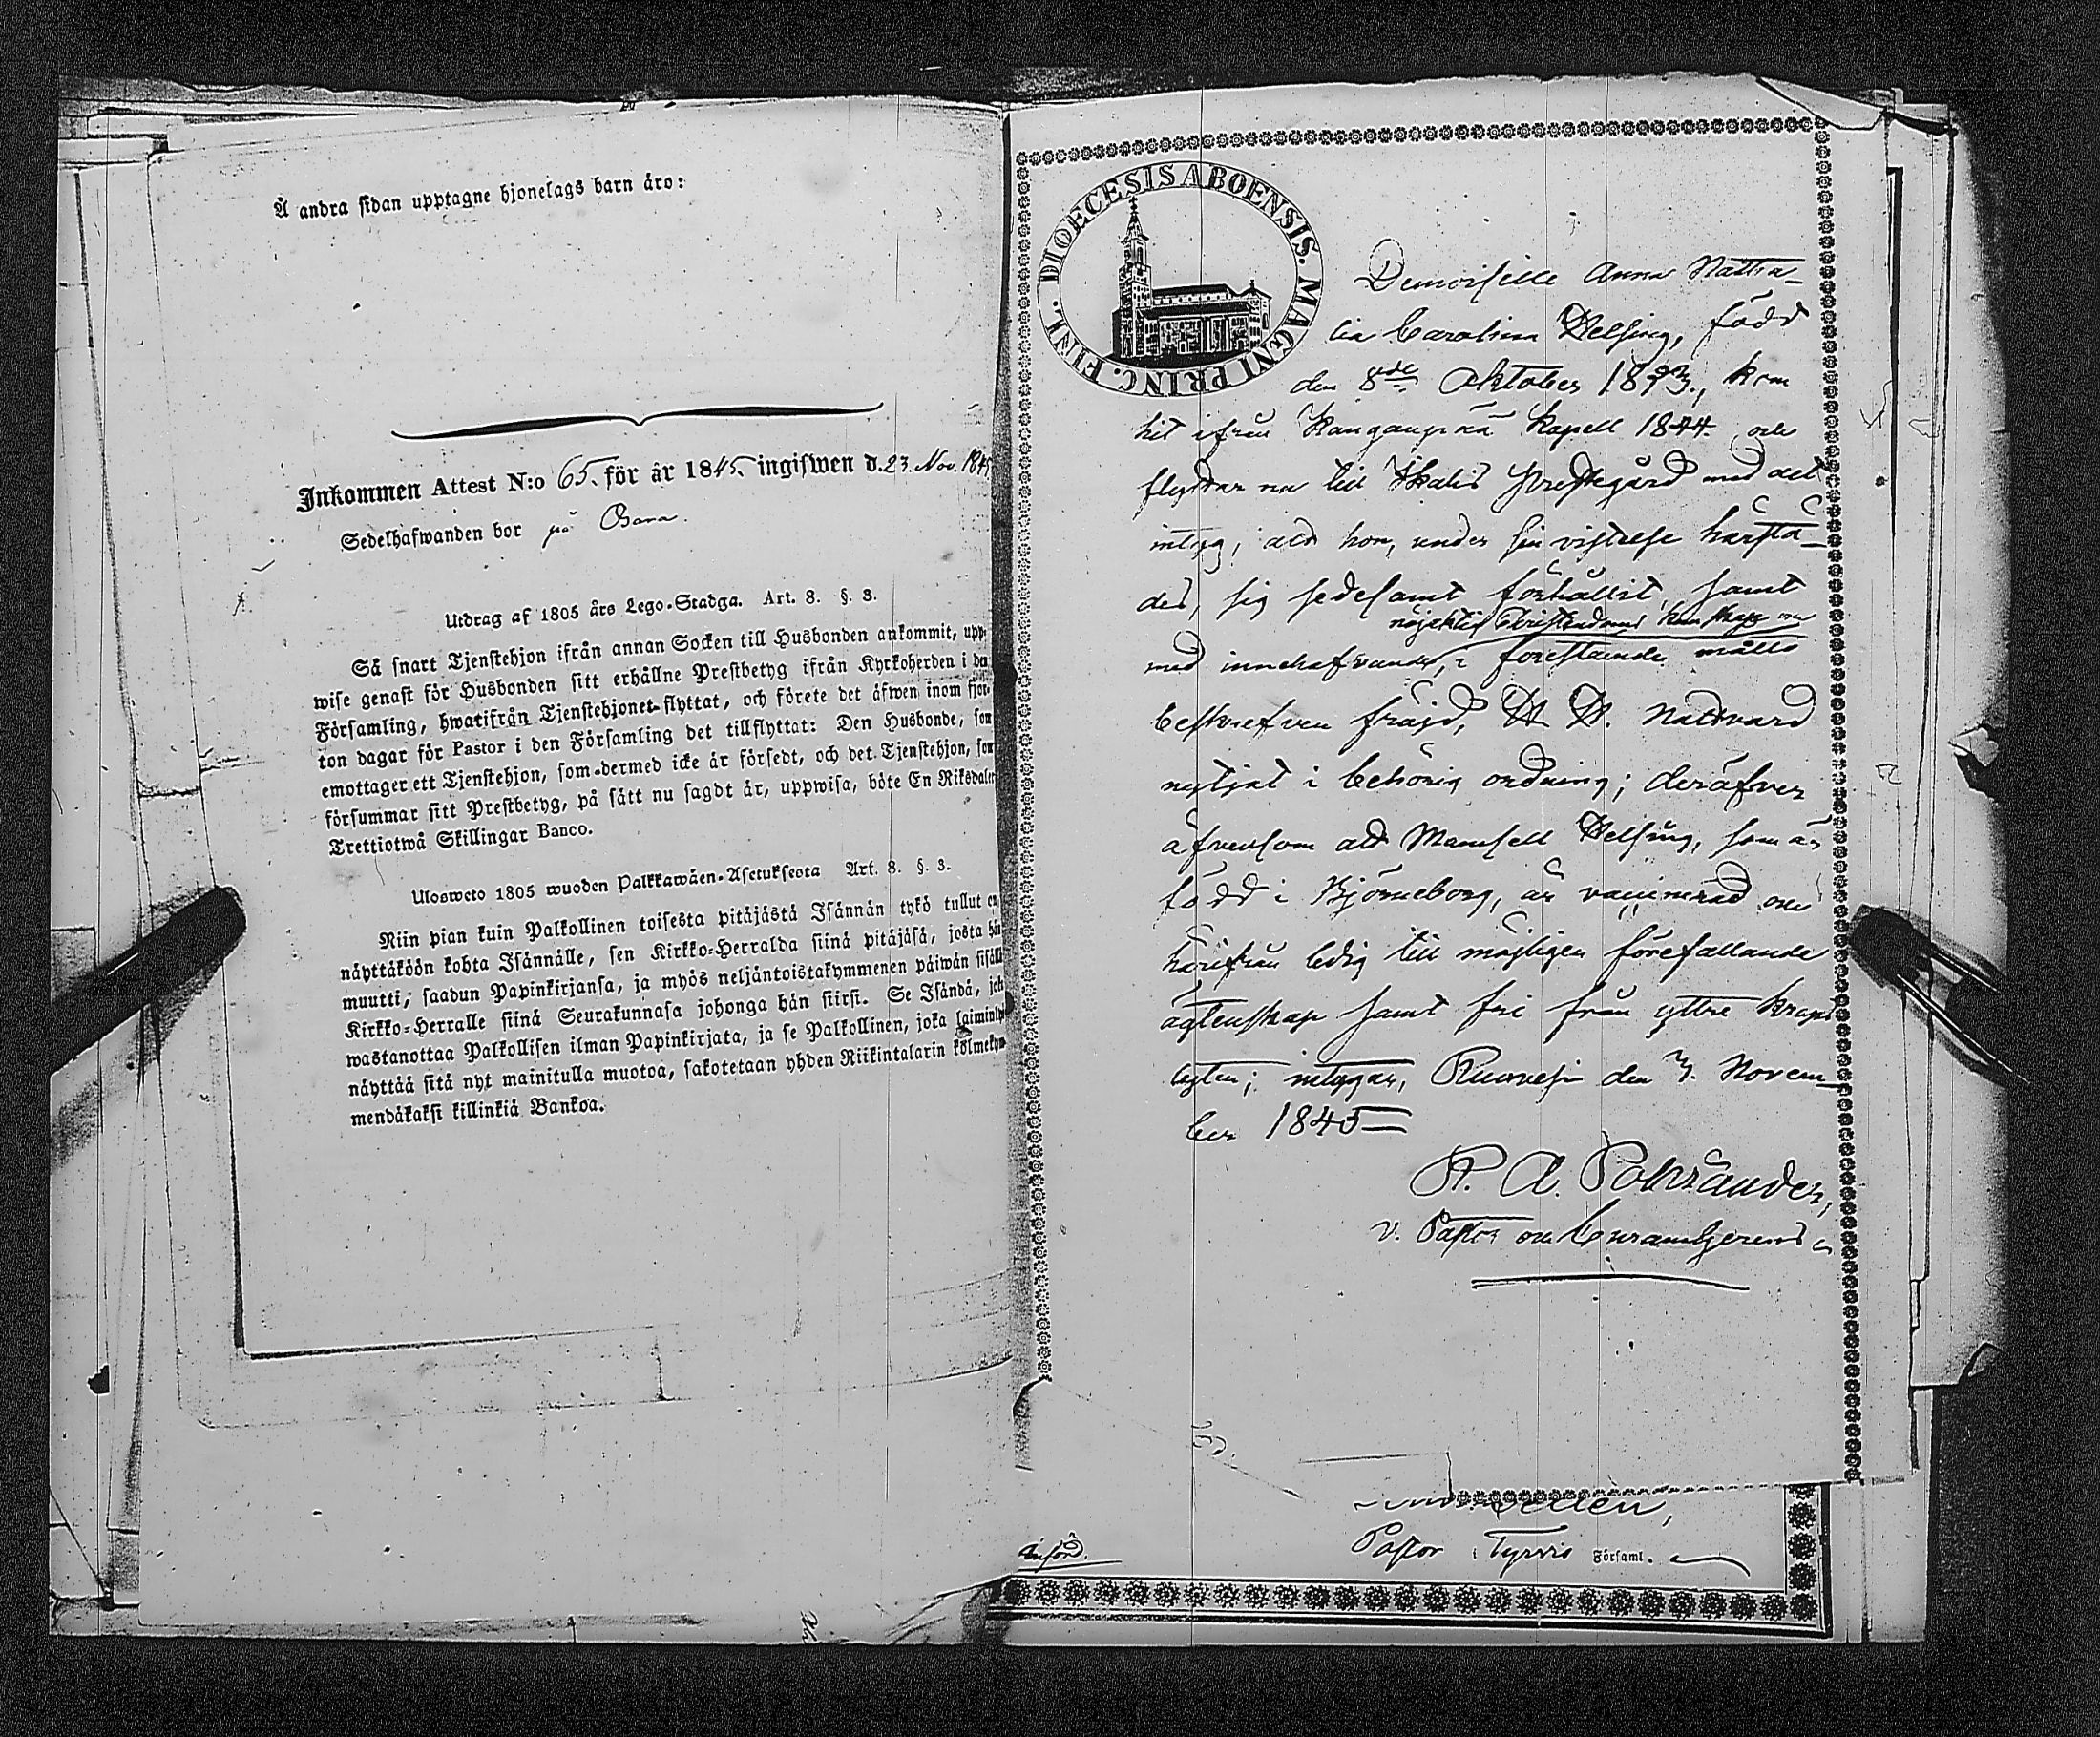 Å andra sidan upptagne hjonelags barn äro:
Inkommen Attest N:o 65. för år 1845. ingifwen d. 23. Nov. 1845
Sedelhafwanden bor på
Utdrag af 1805 års Lego-Stadga. Art. 8. §. 3.
Så snart Tjenstehjon ifrån annan Socken till Husbonden ankommit, upp-
wise genast för Husbonden sitt erhållne Prestbetyg ifrån Kyrkoherden i den
Församling, hwarifrån Tjenstehjonet flyttat, och förete det äfwen inom fjor-
ton dagar för Pastor i den Församling det tillflyttat: Den Husbonde, som
emottager ett Tjenstehjon, som dermed icke är försedt, och det Tjenstehjon, som
försummar sitt Prestbetyg, på sätt nu sagdt är, uppwisa, böte En Riksdaler
Trettiotwå Skillingar Banco.
Ulosweto 1805 wuoden Palkkawäen-Asetuksesta Art. 8. §. 3.
Niin pian kuin Palkollinen toisesta pitäjästä Isännän tykö tullut on
näyttäköön kohta Isännälle, sen Kirkko-Herralda siinä pitäjäsä, josta hän
muutti, saadun Papinkirjansa, ja myös neljäntoistakymmenen päiwän sisällä
Kirkko-Herralle siinä Seurakunnasa johonga hän siirsi. Se Isändä, joka
wastanottaa Palkollisen ilman Papinkirjata, ja se Palkollinen, joka laiminlyö
näyttää sitä nyt mainitulla muotoa, sakotetaan yhden Riikintalarin kolmekym-
mendäkaksi killinkiä Bankoa.
DIOECESIS ABOENSIS. MAGNI PRINC. FINL.
Demoiselle Anna Natha-
lia Carolina Helsing, född
den 8de Oktober 1823., kom
hit ifrån Kanganpää Kapell 1844 och
flyttar nu till Ikalis Prestegård med det
intyg, att hon, under sin vistelse härstä-
des, sig sedesamt förhållit, samt
nöjaktig Christendoms kunskap och
med innehafvande, i förestående måtto
beskrefven fräjd, H. H. Nattvard
nyttjat i behörig ordning; deröfver
äfvensom att Mamsell Helsing, som är
född i Björneborg, är vaccinerad och
härifrån ledig till möjligen förefallande
ägtenskap samt fri från yttre kropps
lyten; intygar, Ruovesi den 3. Novem-
ber 1845
K. A. Polviander,
v. Pastor och CuramGerens
Pastor i Tyrvis Församl.